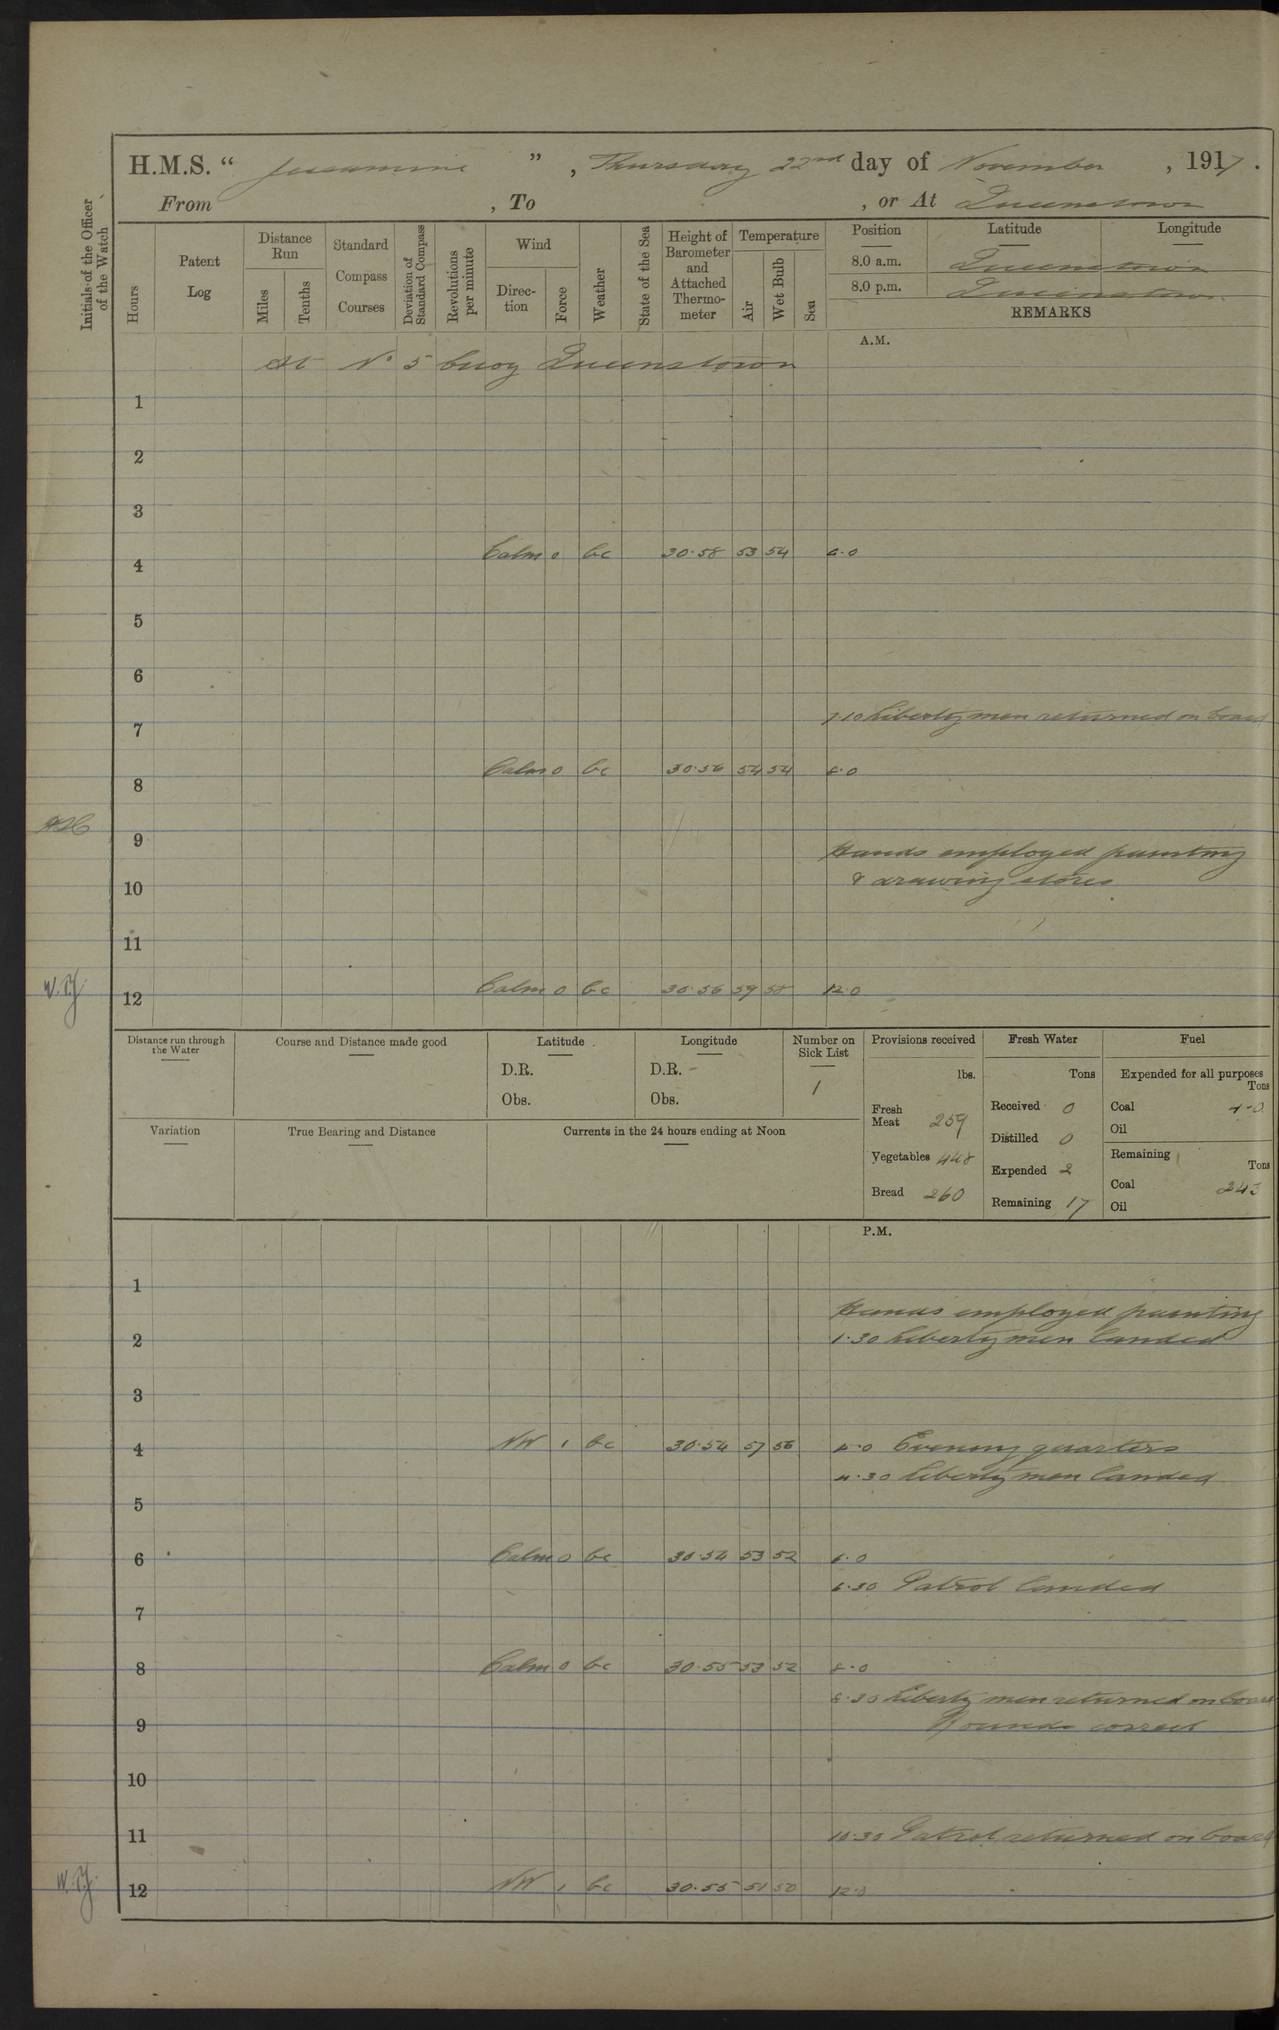 H.M.S. " Jessamine ", Thursday 22nd day of November, 1917.
From , To , or At Queenstown
Initials of the Officer of the Watch
Hours
Patent Log
Distance Run
Miles
Tenths
Standard Compass Courses
Deviation of Standard Compass
Revolutions per minute
Wind
Direction
Force
Weather
State of the Sea
Height of Barometer and Attached Thermometer
Temperature
Air
Wet Bulb
Sea
Position Latitude Longitude
8.0 a.m. Queenstown
8.0 p.m. Queenstown
REMARKS
A.M.
At No 5 buoy Queenstown
1
2
3
4 Calm 0 bc 30.58 53 54 4.0
5
6
7 7.10 Liberty men returned on board
8 Calm 0 bc 30.56 54 54 8.0
9
Hands employed painting
10 & drawing stores
11
W.J. 12 Calm 0 bc 30.56 59 58 12.0
Distance run through the Water
Course and Distance made good
Latitude
D.R.
Obs.
Longitude
D.R.
Obs.
Number on Sick List
1
Variation
True Bearing and Distance
Currents in the 24 hours ending at Noon
Provisions received
lbs.
Fresh Meat 259
Vegetables 448
Bread 260
Fresh Water
Tons
Received 0
Distilled 0
Expended 2
Remaining 17
Fuel
Expended for all purposes
Tons
Coal
Oil
Remaining
Tons
Coal 243
Oil
P.M.
1
Hands employed painting
2 1.30 Liberty men landed
3
4 NW 1 bc 30.54 57 56 4.0 Evening quarters
4.30 Liberty men landed
5
6 Calm 0 bc 30.54 53 52 6.0
6.30 Patrol landed
7
8 Calm 0 bc 30.55 53 52 8.0
8.30 Liberty men returned on board
9 Rounds correct
10
11 10.30 Patrol returned on board
W.J. 12 NW 1 bc 30.55 51 50 12.0